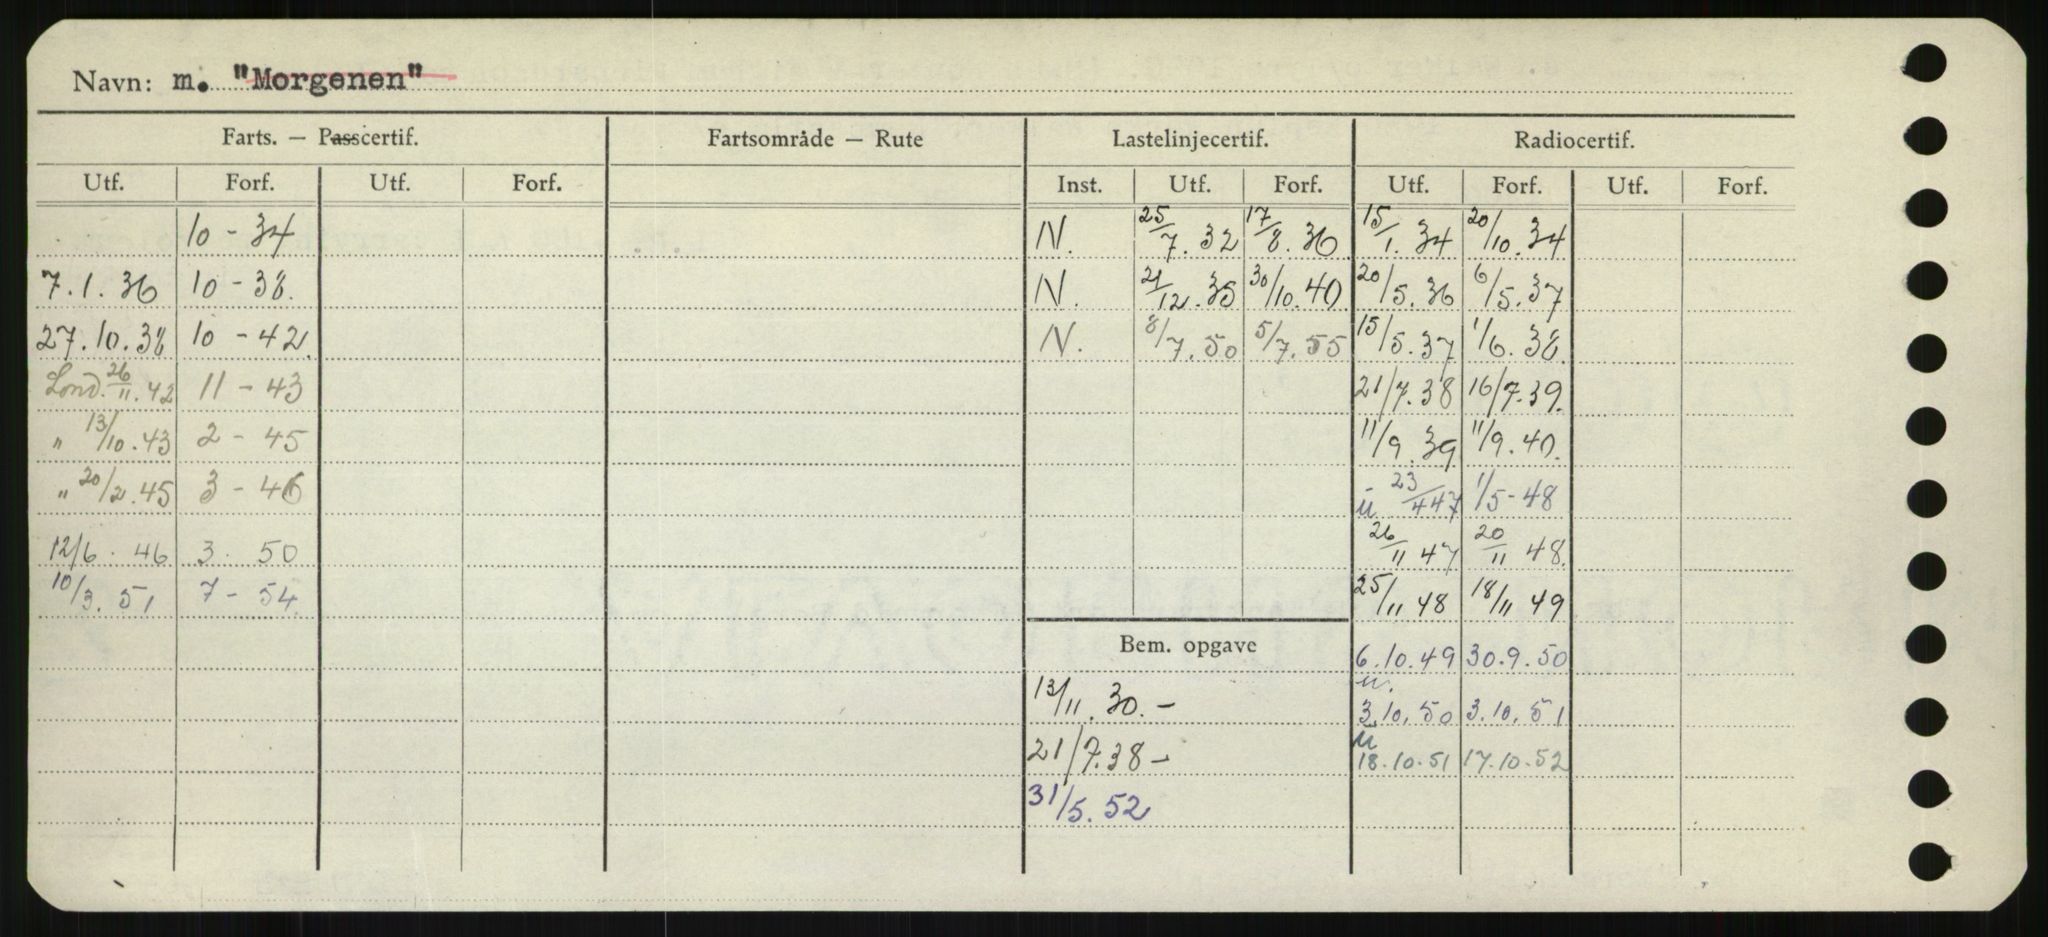 Navn: m. "Morgenen"
Farts. — Passcertif. Fartsområde — Rute Lastelinjecertif. Radiocertif.
Utf. Forf. Utf. Forf. Inst. Utf. Forf. Utf. Forf. Utf. Forf.
10 - 34 N. 25/7. 32 17/8. 36 15/1. 34 20/10. 34
7. 1. 36 10 - 38. N. 21/12. 35 30/10. 40 20/5. 36 6/5. 37
27. 10. 38 10 - 42. N. 8/7. 50 5/7. 55 15/5. 37 1/6. 38.
Lond. 26/11. 42 11 - 43 21/7. 38 16/7. 39.
" 13/10. 43 2 - 45 11/9. 39 11/9. 40.
" 20/2. 45 3 - 46 u 23/4 47 1/5 - 48
12/6. 46 3. 50 26/11 47 20/11 48.
10/3. 51 7 - 54. 25/11 48 18/11 49
Bem. opgave 6. 10. 49 30. 9. 50
13/11. 30. - u. 3. 10. 50 3. 10. 51
21/7. 38 - u 18. 10. 51 17. 10. 52
31/5. 52